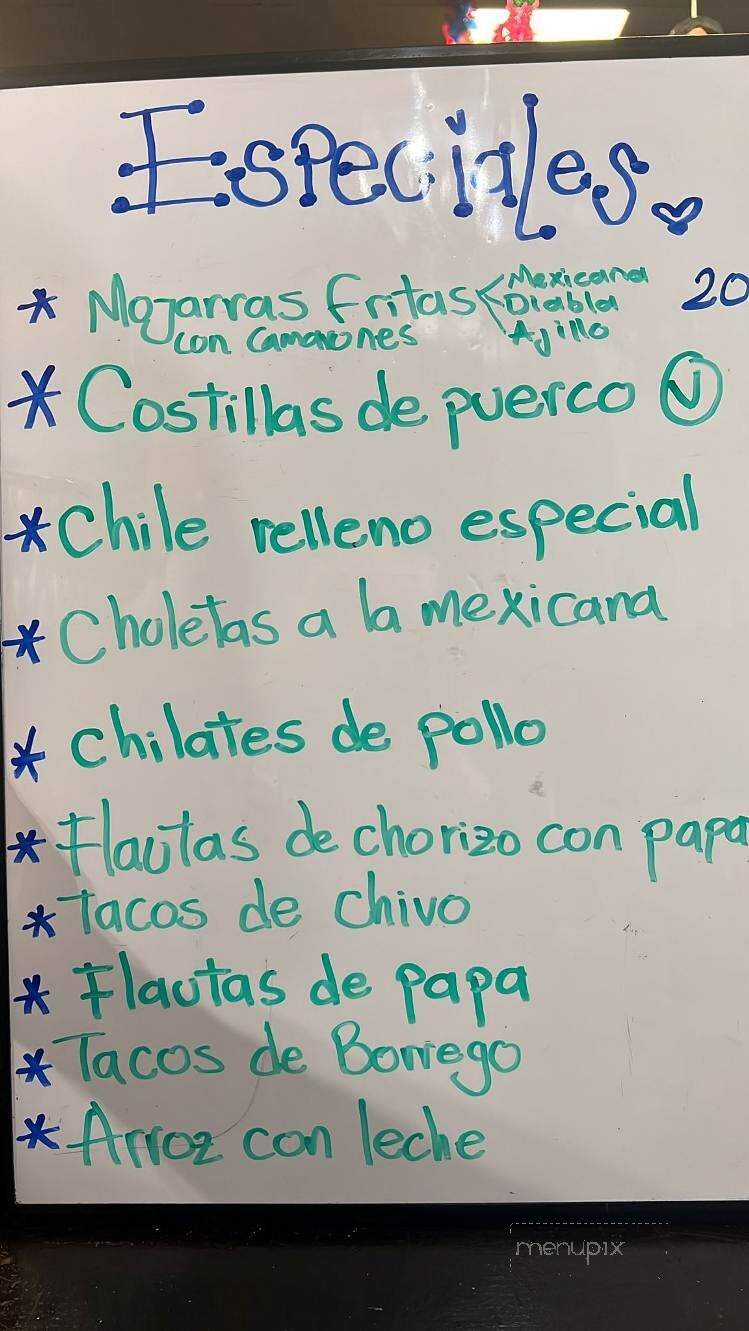 Especiales
* Mojarras fritas < Mexicana 20
Diabla
con camarones Ajillo
* Costillas de puerco
* Chile relleno especial
* Chuletas a la mexicana
* chilates de pollo
* Flautas de chorizo con papa
* Tacos de chivo
* Flautas de papa
* Tacos de Borrego
* Arroz con leche
menupix